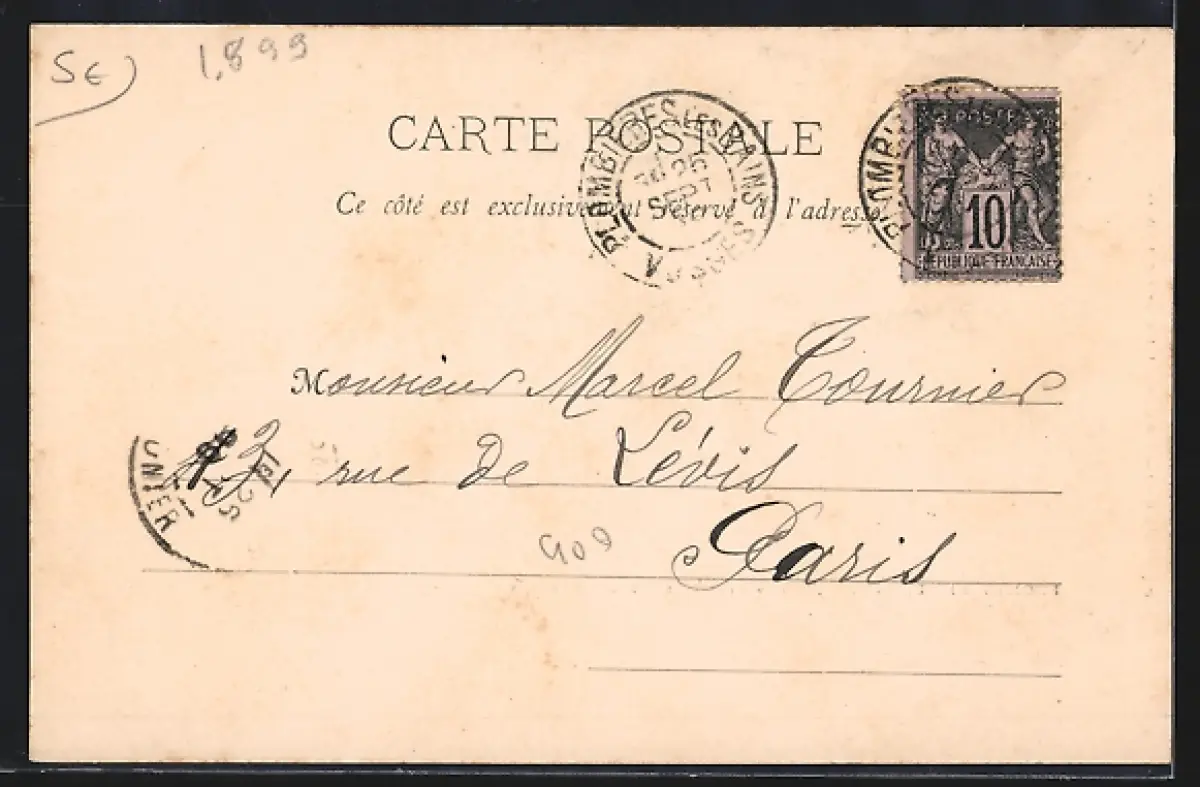 5€ 1,899
CARTE POSTALE
Ce côté est exclusivement réservé à l'adresse
PLOMBIÈRES LES BAINS
25
SEPT
VOSGES
PLOMBI
POSTES
10
REPUBLIQUE FRANÇAISE
Monsieur Marcel Tournier
rue de Lévis
Paris
909